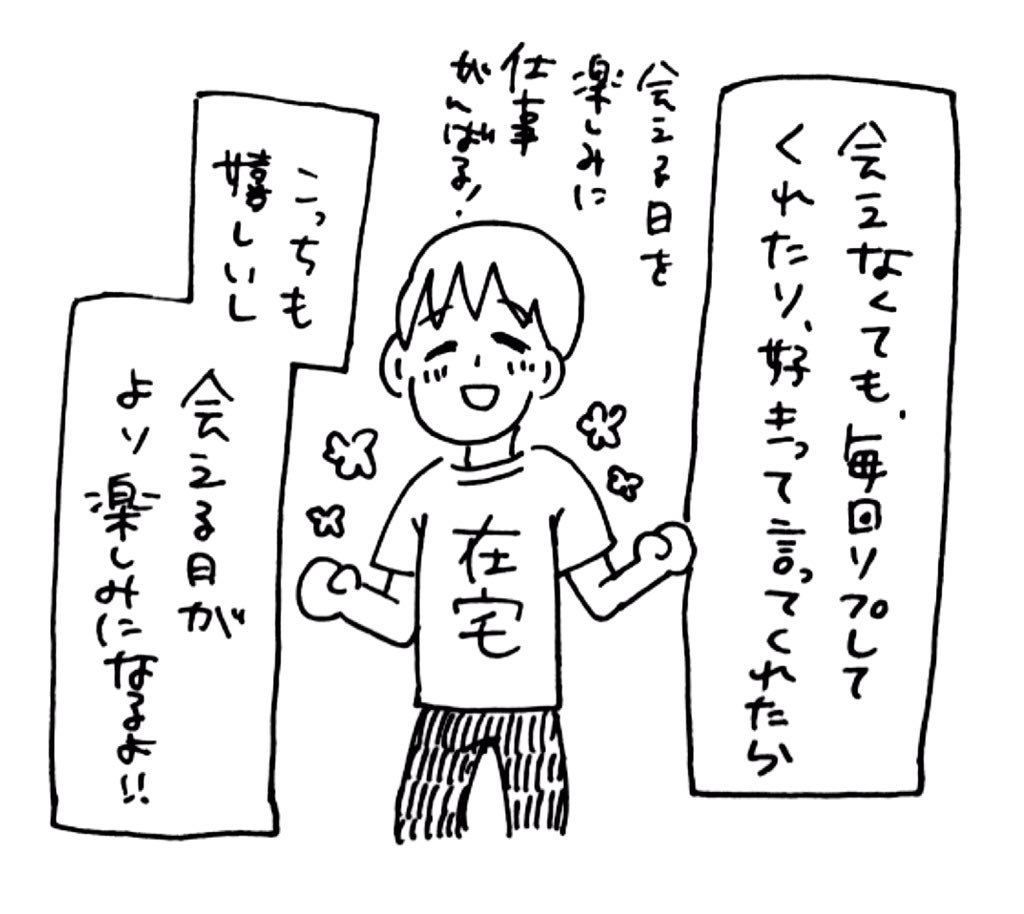 会えなくても、毎回リプして
くれたり、好きって言ってくれたら
会える日を
楽しみに
仕事
がんばる!
こっちも
嬉しいし
会える日が
より楽しみになるよ!!
在宅